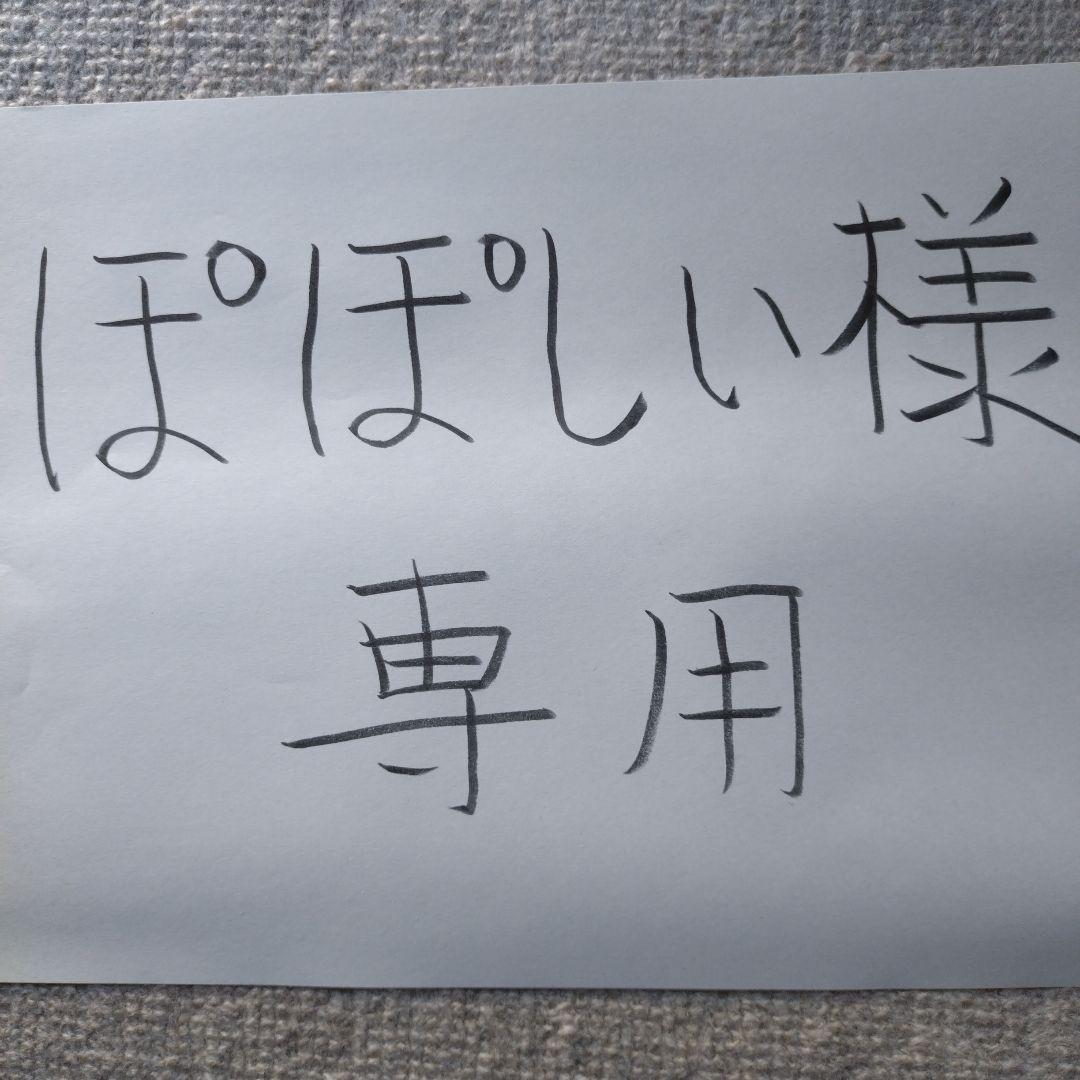 ぽぽしい様
専用